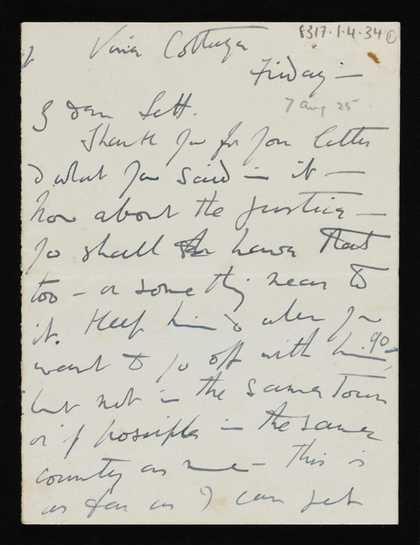 8317.1.4.34
Vine Cottage
Friday —
7 Aug 25
Thank you for your letter
& what you said in it —
Now about the justice —
You shall have that
too — or something near to
it. Keep him & when you
want to go off with him, go —
but not in the same town
or if possible in the same
country as me — This is
as far as I can get